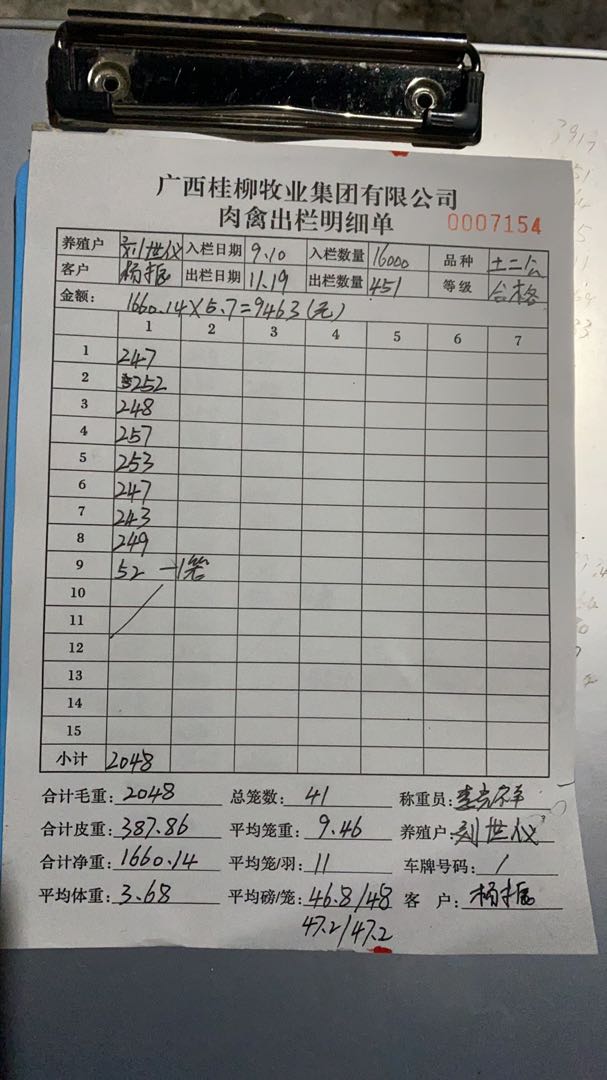 广西桂柳牧业集团有限公司
肉禽出栏明细单 0007154
养殖户 刘世仪 入栏日期 9.10 入栏数量 16000 品种 土二公
客户 杨振 出栏日期 11.19 出栏数量 451 等级 合格
金额: 1660.14×5.7=9463(元)
1 2 3 4 5 6 7
1 247
2 252
3 248
4 257
5 253
6 247
7 243
8 249
9 52 一1笼
10
11
12
13
14
15
小计 2048
合计毛重: 2048 总笼数: 41 称重员:
合计皮重: 387.86 平均笼重: 9.46 养殖户: 刘世仪
合计净重: 1660.14 平均笼/羽: 11 车牌号码: /
平均体重: 3.68 平均磅/笼: 46.8/48 客户: 杨振
47.2/47.2